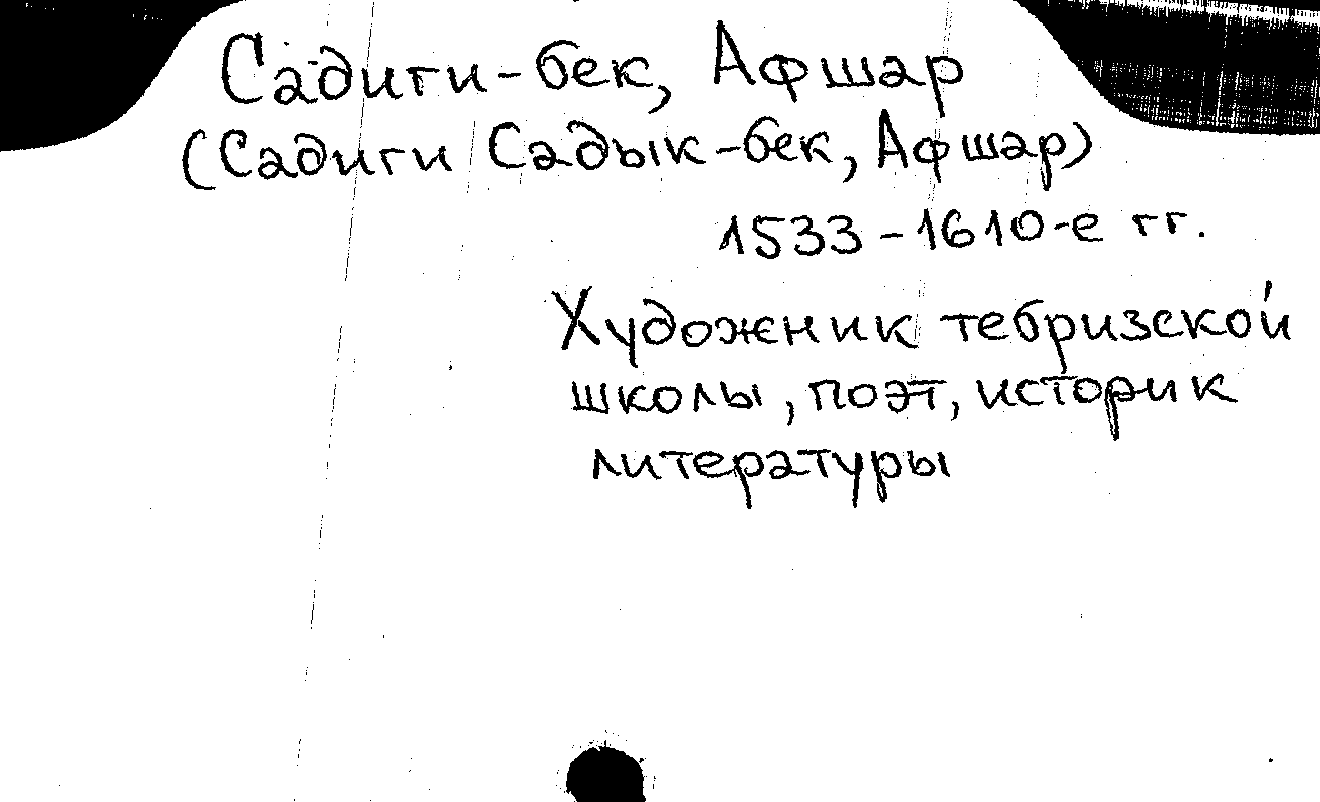 Садиги-бек, Афшар
(Садиги Садык-бек, Афшар)
1533-1610-е гг.
Художник тебризской
школы, поэт, историк
литературы